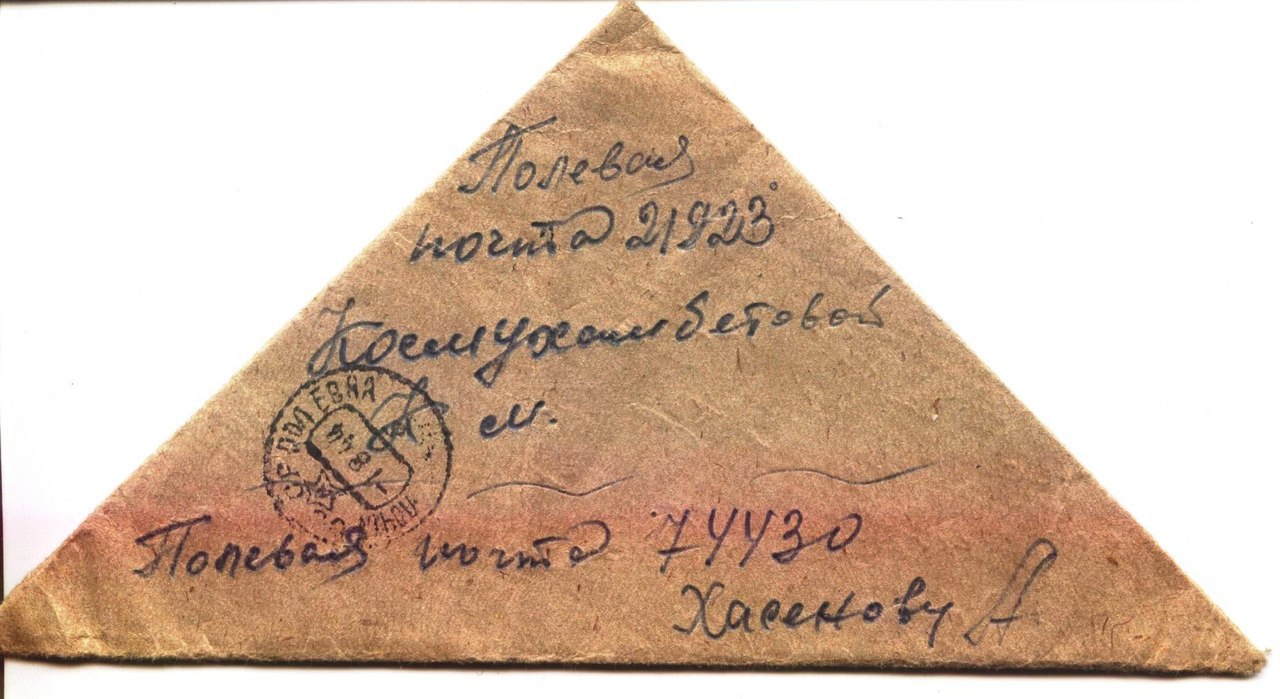 Полевая
почта 21923
Космухамбетовой
А м.
ПОЛЕВАЯ
44
8
Полевая почта 74430
Хасенову А